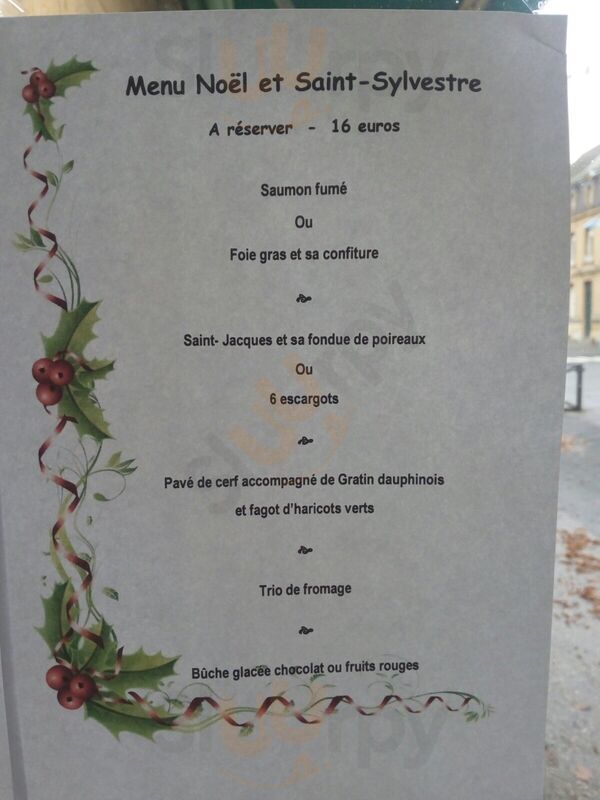 Menu Noël et Saint-Sylvestre
A réserver - 16 euros
Saumon fumé
Ou
Foie gras et sa confiture
Saint- Jacques et sa fondue de poireaux
Ou
6 escargots
Pavé de cerf accompagné de Gratin dauphinois
et fagot d'haricots verts
Trio de fromage
Bûche glacée chocolat ou fruits rouges
sluurpy
sluurpy
sluurpy